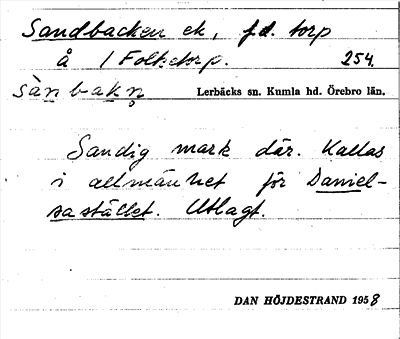 Sandbacken ek, f.d. torp
å 1 Folketorp. 254.
sànbakn̥
Lerbäcks sn. Kumla hd. Örebro län.
Sandig mark där. Kallas
i allmänhet för Daniel-
sastället. Utlagt.
DAN HÖJDESTRAND 1958